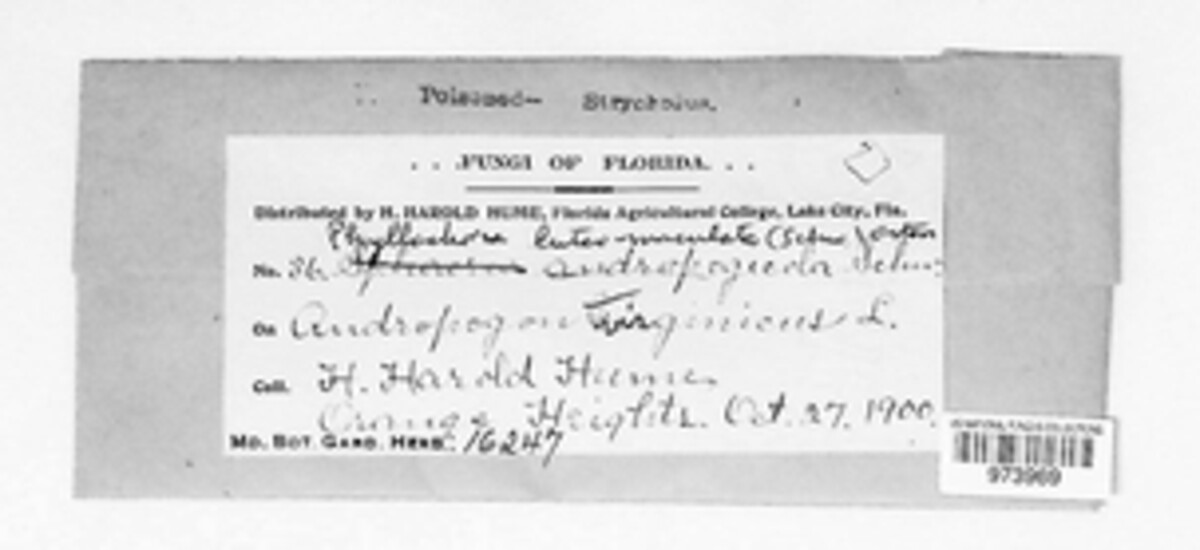 Poisoned— Strychnine.
. . .FUNGI OF FLORIDA. . .
Distributed by H. HAROLD HUME, Florida Agricultural College, Lake City, Fla.
Phyllachora luteo-maculata (Schw)
No. 36. Sphaeria andropogicola Schw.
On Andropogon Virginicus L.
Coll. H. Harold Hume.
Orange Heights. Oct. 27. 1900.
MO. BOT. GARD. HERB. 16247
973969